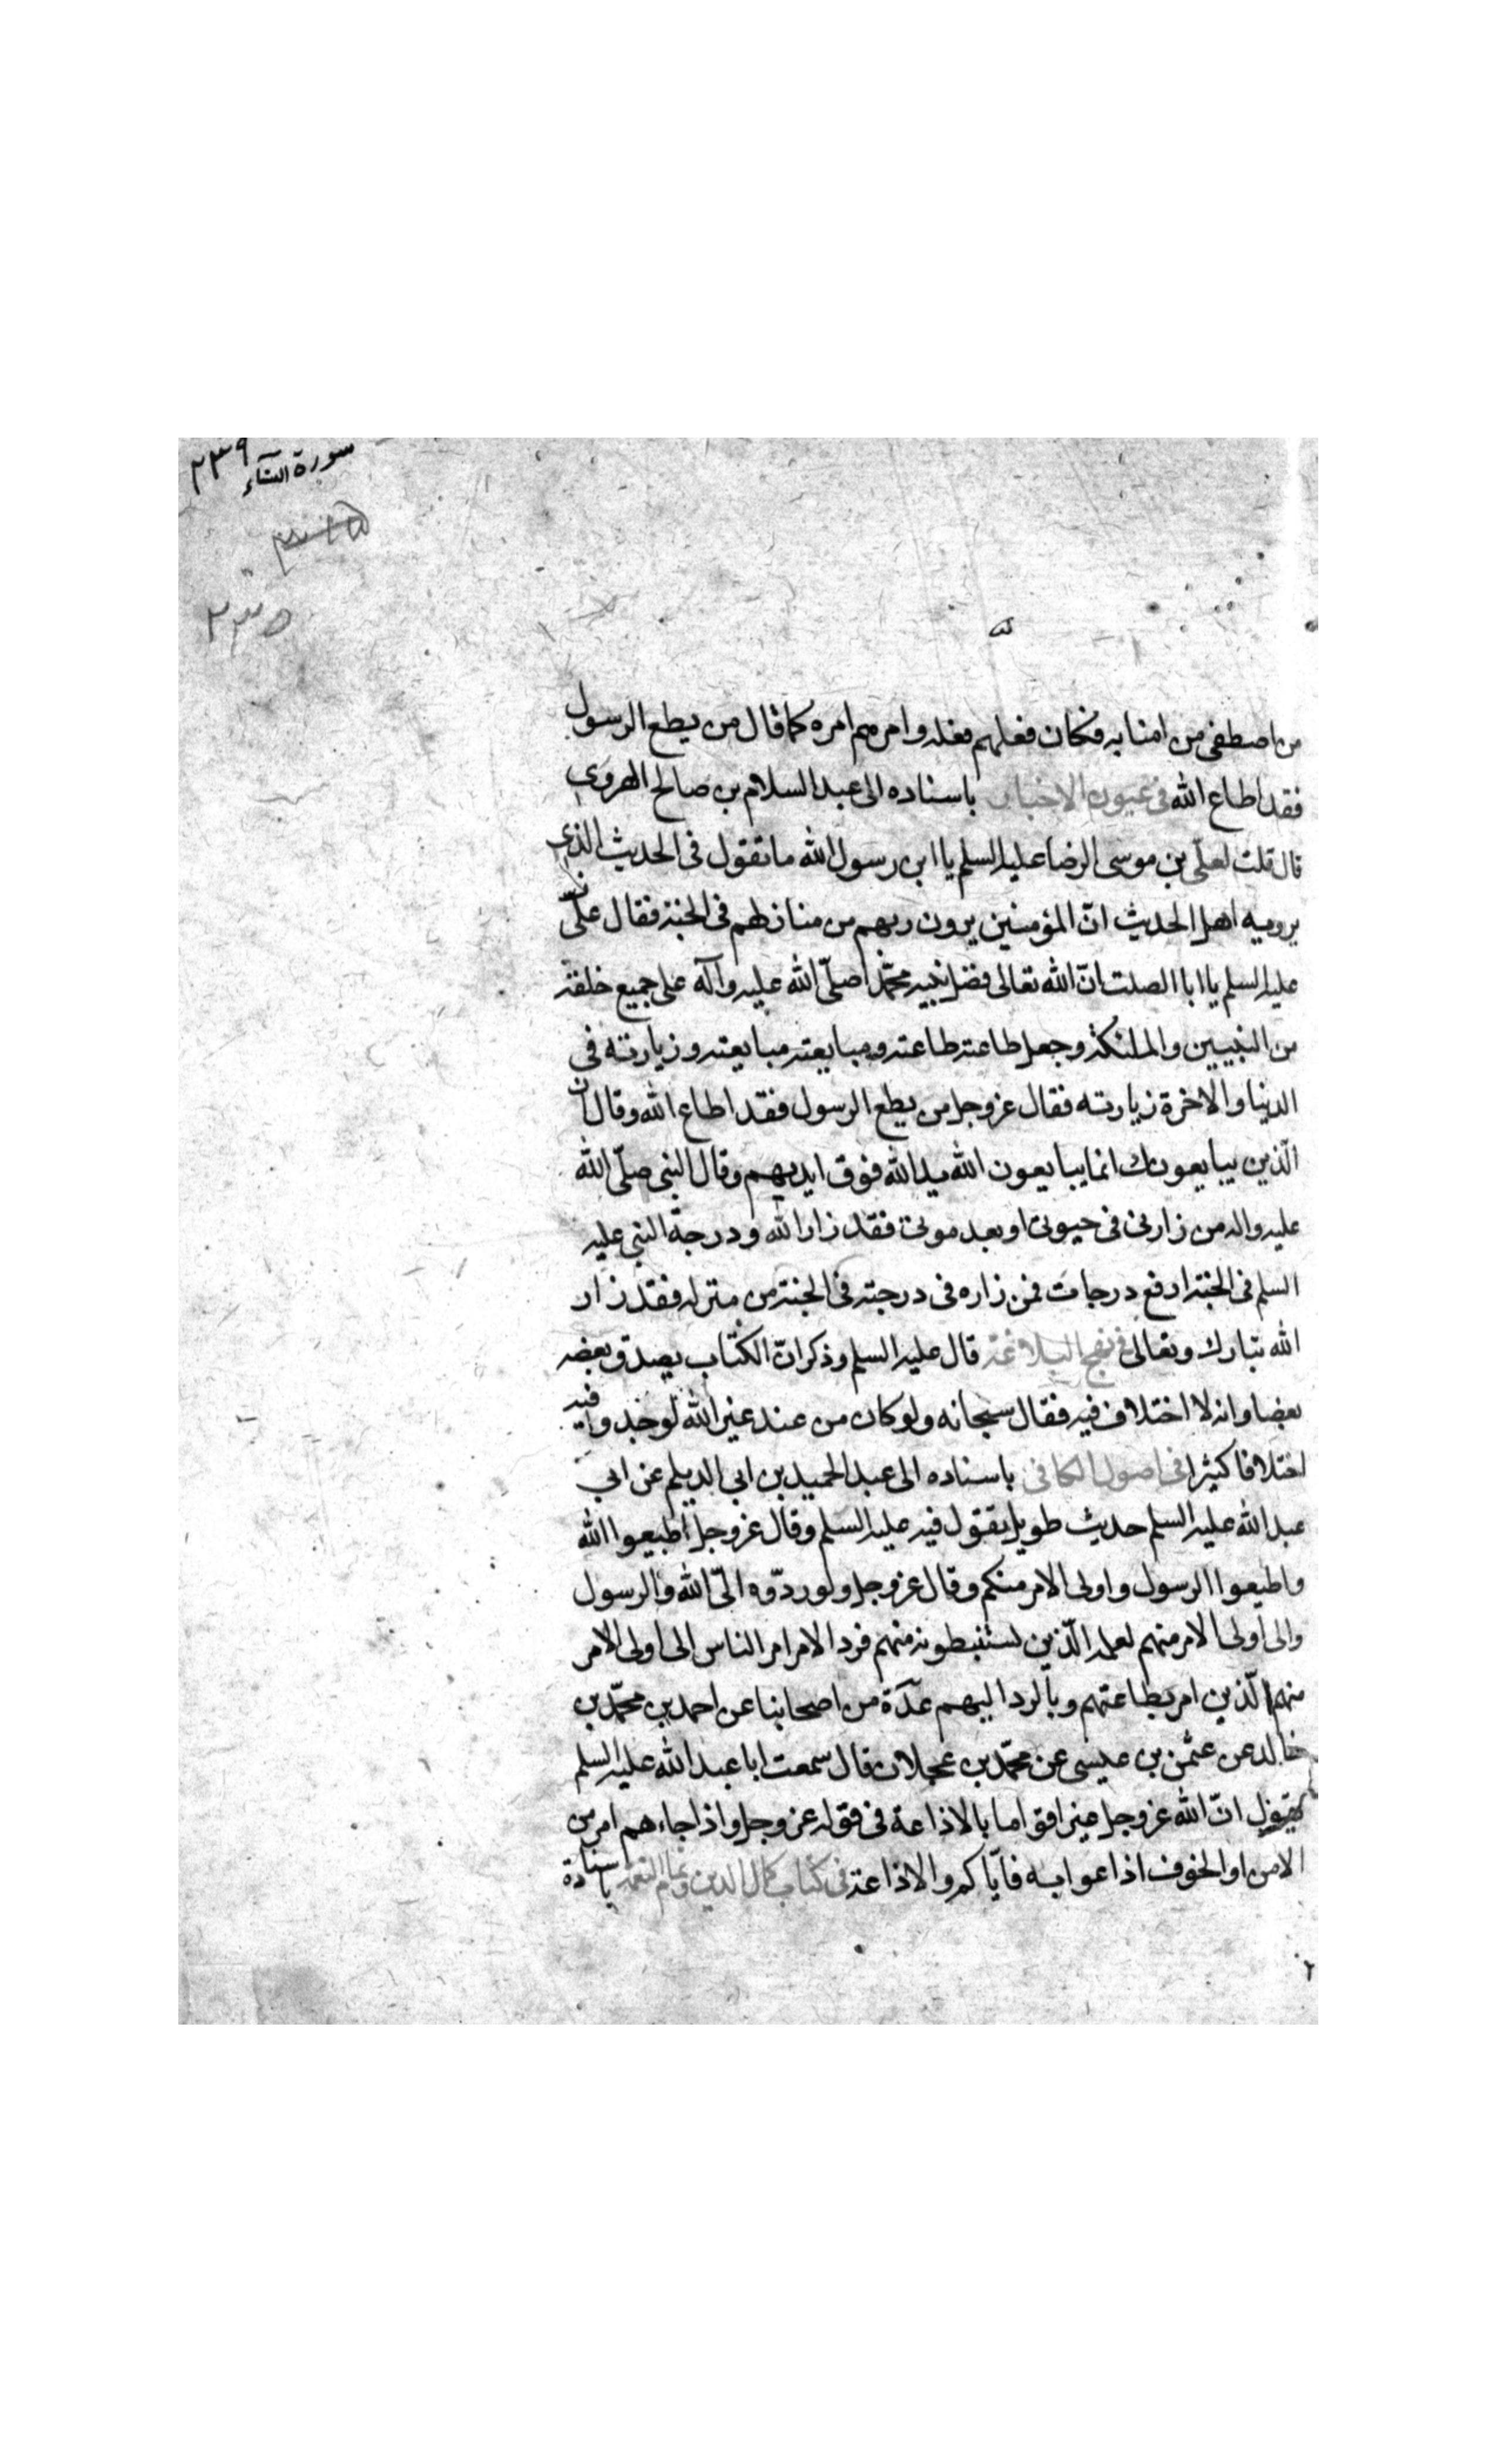 سورة النساء ٢٣٩
٢٣٥
من اصطفى من امنائه فكان فعلهم فعله وامرهم امره كما قال من يطع الرسول
فقد اطاع الله فى عيون الاخبار باسناده الى عبد السلام بن صالح الهروى
قال قلت لعلى بن موسى الرضا عليه السلم يا ابن رسول الله ما تقول فى الحديث الذى
يرويه اهل الحديث انّ المؤمنين يرون ربهم من منازلهم فى الجنة فقال علىّ
عليه السلم يا ابا الصلت انّ الله تعالى فضل نبيه محمّدا صلّى الله عليه وآله على جميع خلقه
من النبيين والملئكة وجعل طاعته طاعته ومبايعته مبايعته وزيارته فى
الدنيا والاخرة زيارته فقال عز وجل من يطع الرسول فقد اطاع الله وقال ان
الّذين يبايعونك انما يبايعون الله يد الله فوق ايديهم وقال النبى صلّى الله
عليه واله من زارنى فى حيوتى او بعد موتى فقد زار الله ودرجة النبى عليه
السلم فى الجنة ارفع درجات فمن زاره فى درجته فى الجنة من منزله فقد زار
الله تبارك وتعالى فى نهج البلاغة قال عليه السلم وذكر انّ الكتاب يصدق بعضه
بعضا وانه لا اختلاف فيه فقال سبحانه ولو كان من عند غير الله لوجدوا فيه
اختلافا كثيرا فى اصول الكافى باسناده الى عبد الحميد بن ابى الديلم عن ابى
عبد الله عليه السلم حديث طويل يقول فيه عليه السلم وقال عز وجل اطيعوا الله
واطيعوا الرسول واولى الامر منكم وقال عز وجل ولو ردّوه الىّ الله والرسول
والى اولى الامر منهم لعلمه الّذين يستنبطونه منهم فرد الامر امر الناس الى اولى الامر
منهم الّذين امر بطاعتهم وبالرد اليهم عدّة من اصحابنا عن احمد بن محمّد بن
خالد عن عثمن بن عيسى عن محمّد بن عجلان قال سمعت ابا عبد الله عليه السلم
يقول انّ الله عز وجل عير اقواما بالاذاعة فى قوله عز وجل واذا جاءهم امر من
الامن او الخوف اذاعوا به فايّاكم والاذاعة فى كتاب كمال الدين وتمام النعمة باسناده